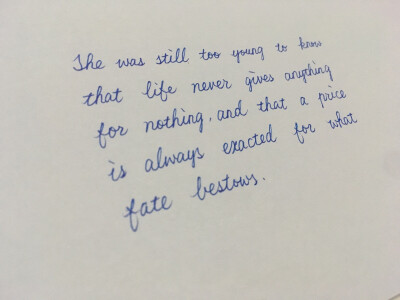 She was still too young to know
that life never gives anything
for nothing, and that a price
is always exacted for what
fate bestows.